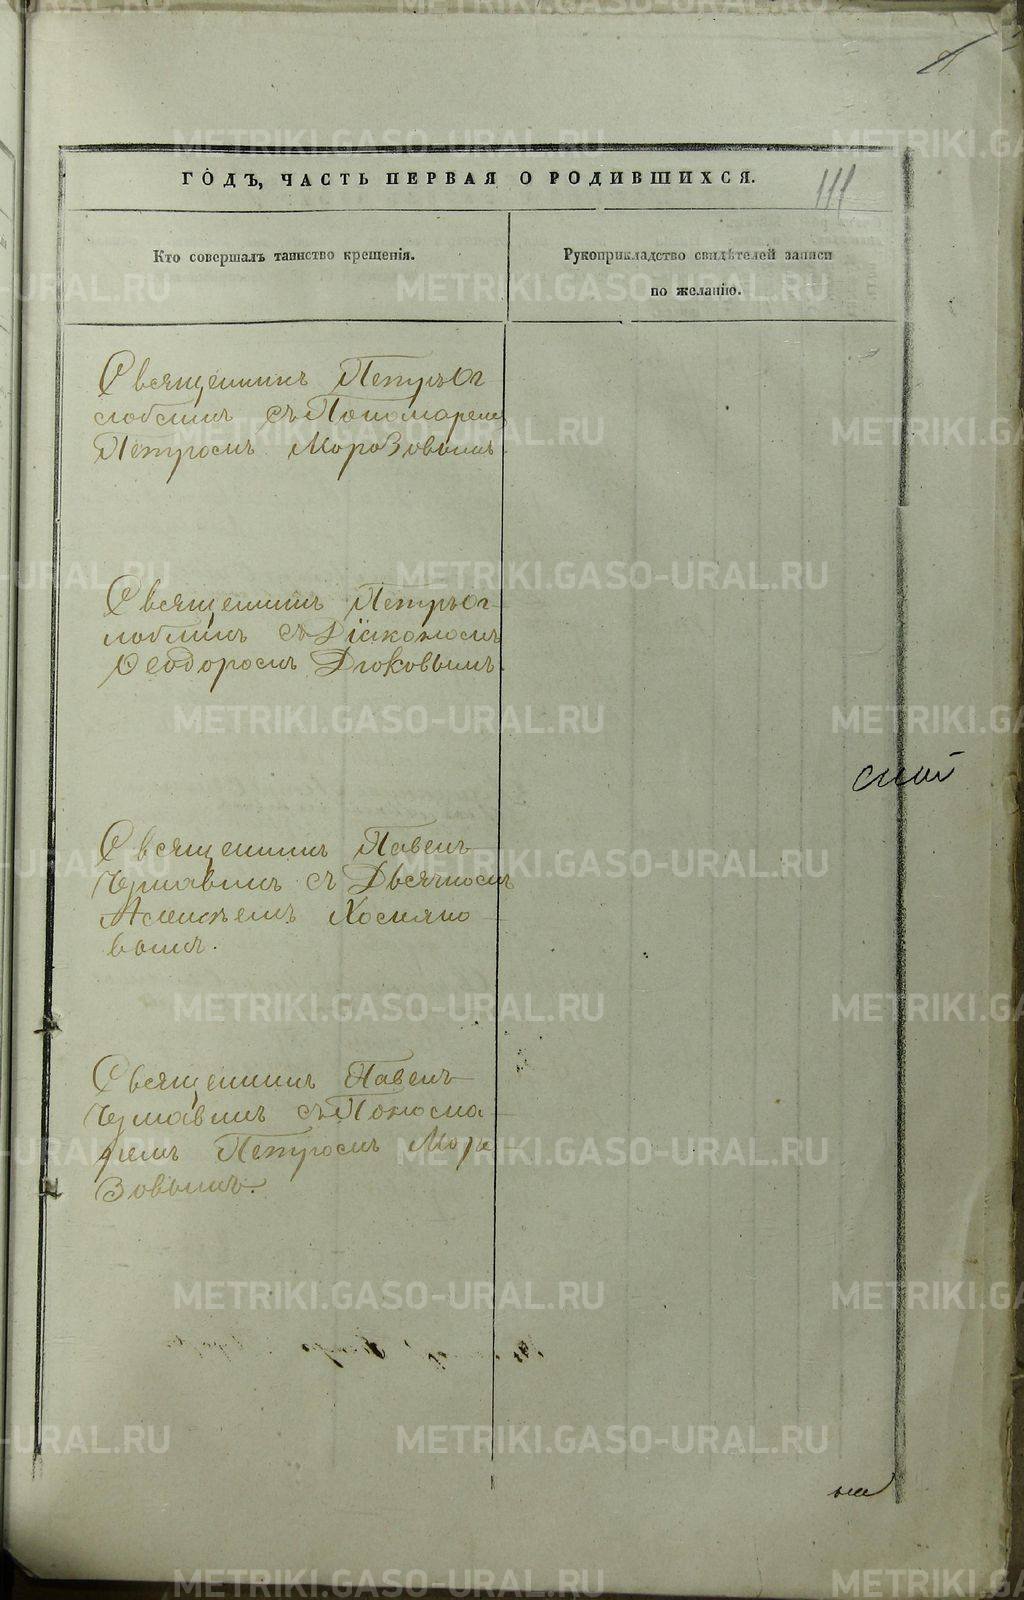 ГОДЪ, ЧАСТЬ ПЕРВАЯ О РОДИВШИХСЯ.
111
Кто совершалъ таинство крещенія.
Рукоприкладство свидѣтелей записи
по желанію.
Священникъ Петръ Ог
лоблинъ съ Пономаремъ
Петромъ Морозовымъ.
Священникъ Петръ Ог
лоблинъ съ Діакономъ
Ѳеодоромъ Дюковымъ.
Священникъ Павелъ
съ Дьячкомъ
Алексѣемъ
вымъ.
Священникъ Павелъ
съ Понома
ремъ Петромъ Моро
зовымъ.
METRIKI.GASO-URAL.RU